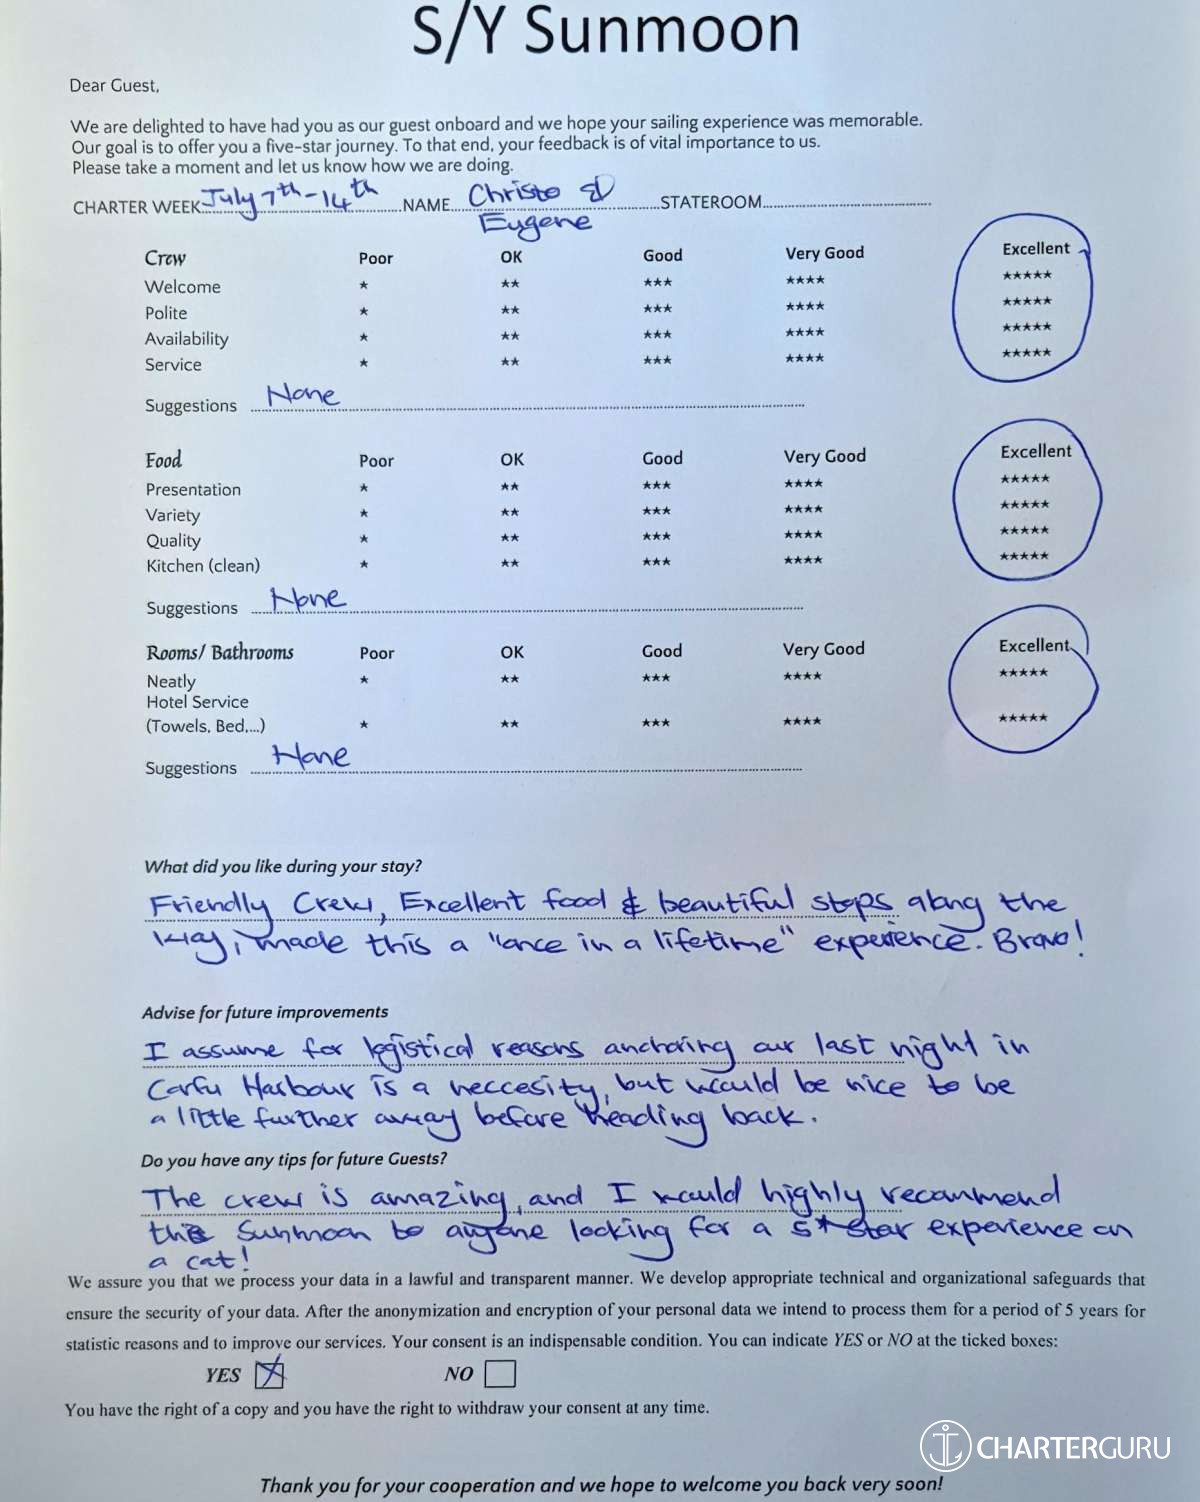 S/Y Sunmoon
Dear Guest,
We are delighted to have had you as our guest onboard and we hope your sailing experience was memorable.
Our goal is to offer you a five-star journey. To that end, your feedback is of vital importance to us.
Please take a moment and let us know how we are doing.
CHARTER WEEK July 7th - 14th NAME Christo & STATEROOM
Eugene
Crew Poor OK Good Very Good Excellent
Welcome * ** *** **** *****
Polite * ** *** **** *****
Availability * ** *** **** *****
Service * ** *** **** *****
Suggestions None
Food Poor OK Good Very Good Excellent
Presentation * ** *** **** *****
Variety * ** *** **** *****
Quality * ** *** **** *****
Kitchen (clean) * ** *** **** *****
Suggestions None
Rooms/ Bathrooms Poor OK Good Very Good Excellent
Neatly * ** *** **** *****
Hotel Service
(Towels, Bed,...) * ** *** **** *****
Suggestions None
What did you like during your stay?
Friendly Crew, Excellent food & beautiful stops along the
way, made this a "once in a lifetime" experience. Bravo!
Advise for future improvements
I assume for logistical reasons anchoring our last night in
Corfu Harbour is a neccesity, but would be nice to be
a little further away before heading back.
Do you have any tips for future Guests?
The crew is amazing, and I would highly recommend
the Sunmoon to anyone looking for a 5* star experience on
a cat!
We assure you that we process your data in a lawful and transparent manner. We develop appropriate technical and organizational safeguards that
ensure the security of your data. After the anonymization and encryption of your personal data we intend to process them for a period of 5 years for
statistic reasons and to improve our services. Your consent is an indispensable condition. You can indicate YES or NO at the ticked boxes:
YES X NO
You have the right of a copy and you have the right to withdraw your consent at any time.
CHARTERGURU
Thank you for your cooperation and we hope to welcome you back very soon!